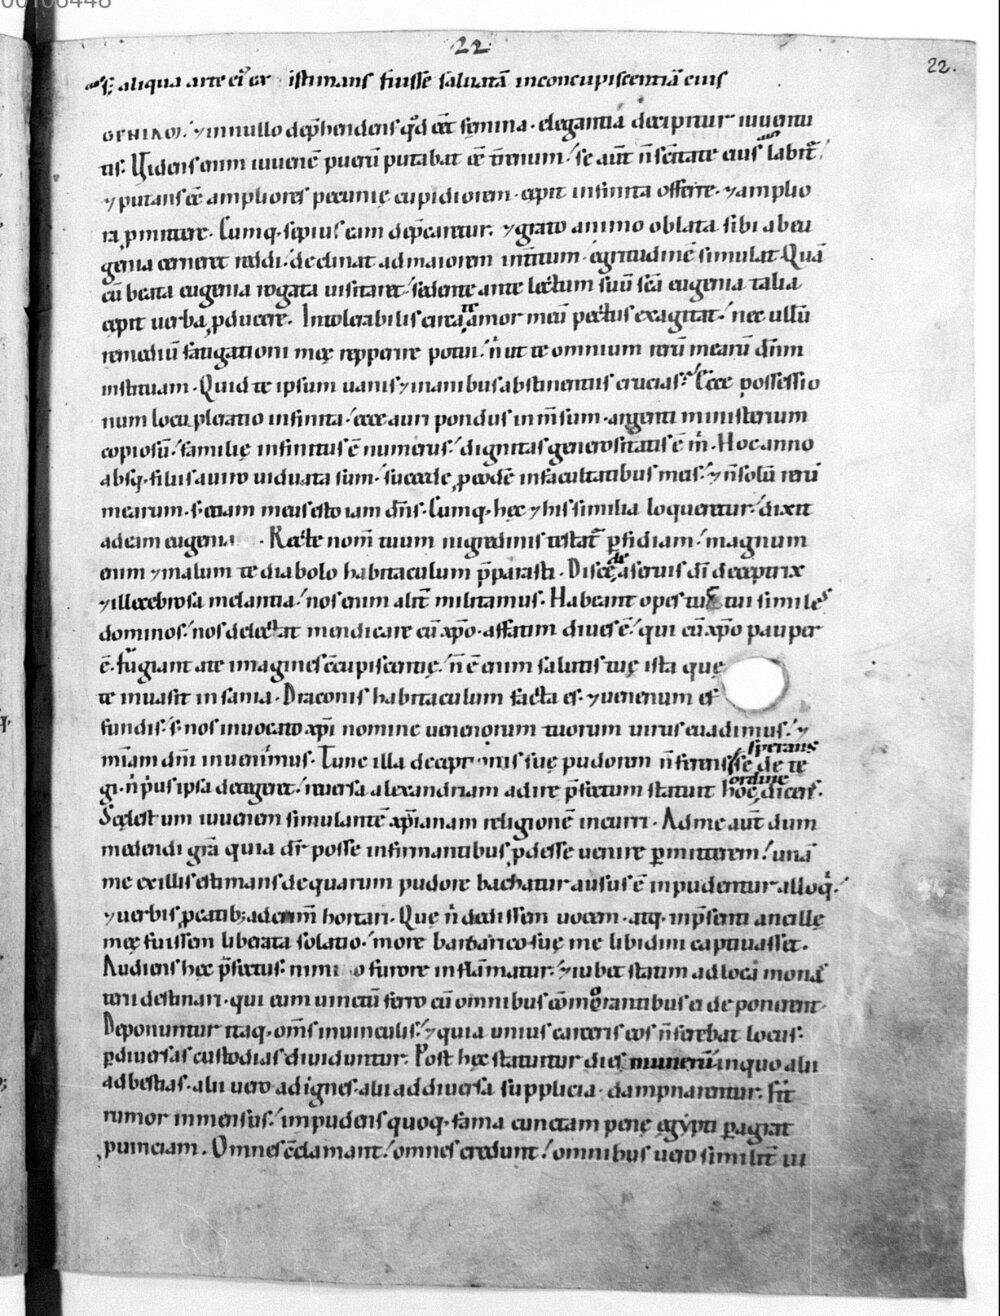 22
22.
s; aliqua arte ei' ex istimans fuisse saluatā inconcupiscentiā eius
⁊ in nullo dep̄hendens qd̄ eēt femina. elegantiā decipitur iuuentu
tis. Uidens enim iuuenē puerū putabat eē t̄renum. se aūt n̄ sc̄itate eius labit̄.
⁊ putans eē ampliores pecunię cupidiorem. cępit infinita offerre. ⁊ amplio
ra ꝓmittere. Cumq. sępius eam dep̄caretur. ⁊ grato animo oblata sibi ab eu
genia cerneret reddi. declinat ad maiorem int̄itum. egritudinē simulat. Quā
cū beata eugenia rogata uisitaret. sedente ante lectum suū sc̄a eugenia talia
cępit uerba ꝓducere. Intolerabilis circa te amor meū pectus exagitat. nec ullū
remediū fatigationi meę repperire potui. n̄ ut te omnium rerū mearū dn̄m
instituam. Quid te ipsum uanis ⁊ inanibus abstinentiis crucias. Ecce possessio
num locupletatio infinita. ecce auri pondus inm̄sum. argenti ministerium
copiosū. familię infinitus ē numerus. dignitas generositatis ē m̄. Hoc anno
absq. filiis a uiro uiduata sum. succede ꝓ eodē in facultatibus meis. ⁊ n̄ solū rerū
mearum. s; etiam meus esto iam dn̄s. Cumq. hęc ⁊ his similia loqueretur. dixit
ad eam eugenia. Recte nom̄ tuum nigredinis testat̄ ꝑfidiam. magnum
enim ⁊ malum te diabolo habitaculum p̄parasti. Discede a seruis dī deceptrix
⁊ illecebrosa melantia. nos enim alit̄ militamus. Habeant opes tuas tui similes
dominos. nos delectat mendicare cū xp̄o. affatim diues ē. qui cū xp̄o pauper
ē. fugiant a te imagines ꝯcupiscentię. n̄ ē enim salutis tuę ista quę
te inuasit insania. Draconis habitaculum facta es. ⁊ uenenum ef
fundis. s; nos inuocato xp̄i nomine uenenorum tuorum uirus euadimus. ⁊
mīam dn̄i inuenimus. Tunc illa deceptionis suę pudorem n̄ ferens sperans se de te
gi. n̄ p̄us ipsa detigeret. reuersa alexandriam adire p̄fectum statuit hoc ordine dicens.
Scęlestum iuuenem simulantē xp̄ianam religionē incurri. Ad me aūt dum
medendi gr̄a quia dr̄ posse infirmantibus ꝓdesse uenire ꝑmitterem. unā
me ex illis estimans de quarum pudore bachatur ausus ē inpudenter alloq̄.
⁊ uerbis ꝓcatib; ad crim̄ hortari. Quę n̄ dedissem uocem. atq. inp̄senti ancillę
meę fuissem liberata solatio. more barbarico suę me libidini captiuasset.
Audiens hęc p̄fectus nimio furore inflāmatur. ⁊ iubet statim ad locū monas
terii destinari. qui eum uinctū ferro cū omnibus cōmorantibus ei deponerent.
Deponuntur itaq. om̄s in uinculis. ⁊ quia unius carceris eos n̄ ferebat locus.
ꝑ diuersas custodias diuiduntur. Post hęc statuitur dies munerū in quo alii
ad bestias. alii uero ad ignes. alii ad diuersa supplicia dampnarentur. fit
rumor inmensus. impudens quoq. fama cunctam pene ęgypti ꝑagrat
ꝓuinciam. Omnes ꝯclamant. omnes credunt. omnibus uero similit̄ ui